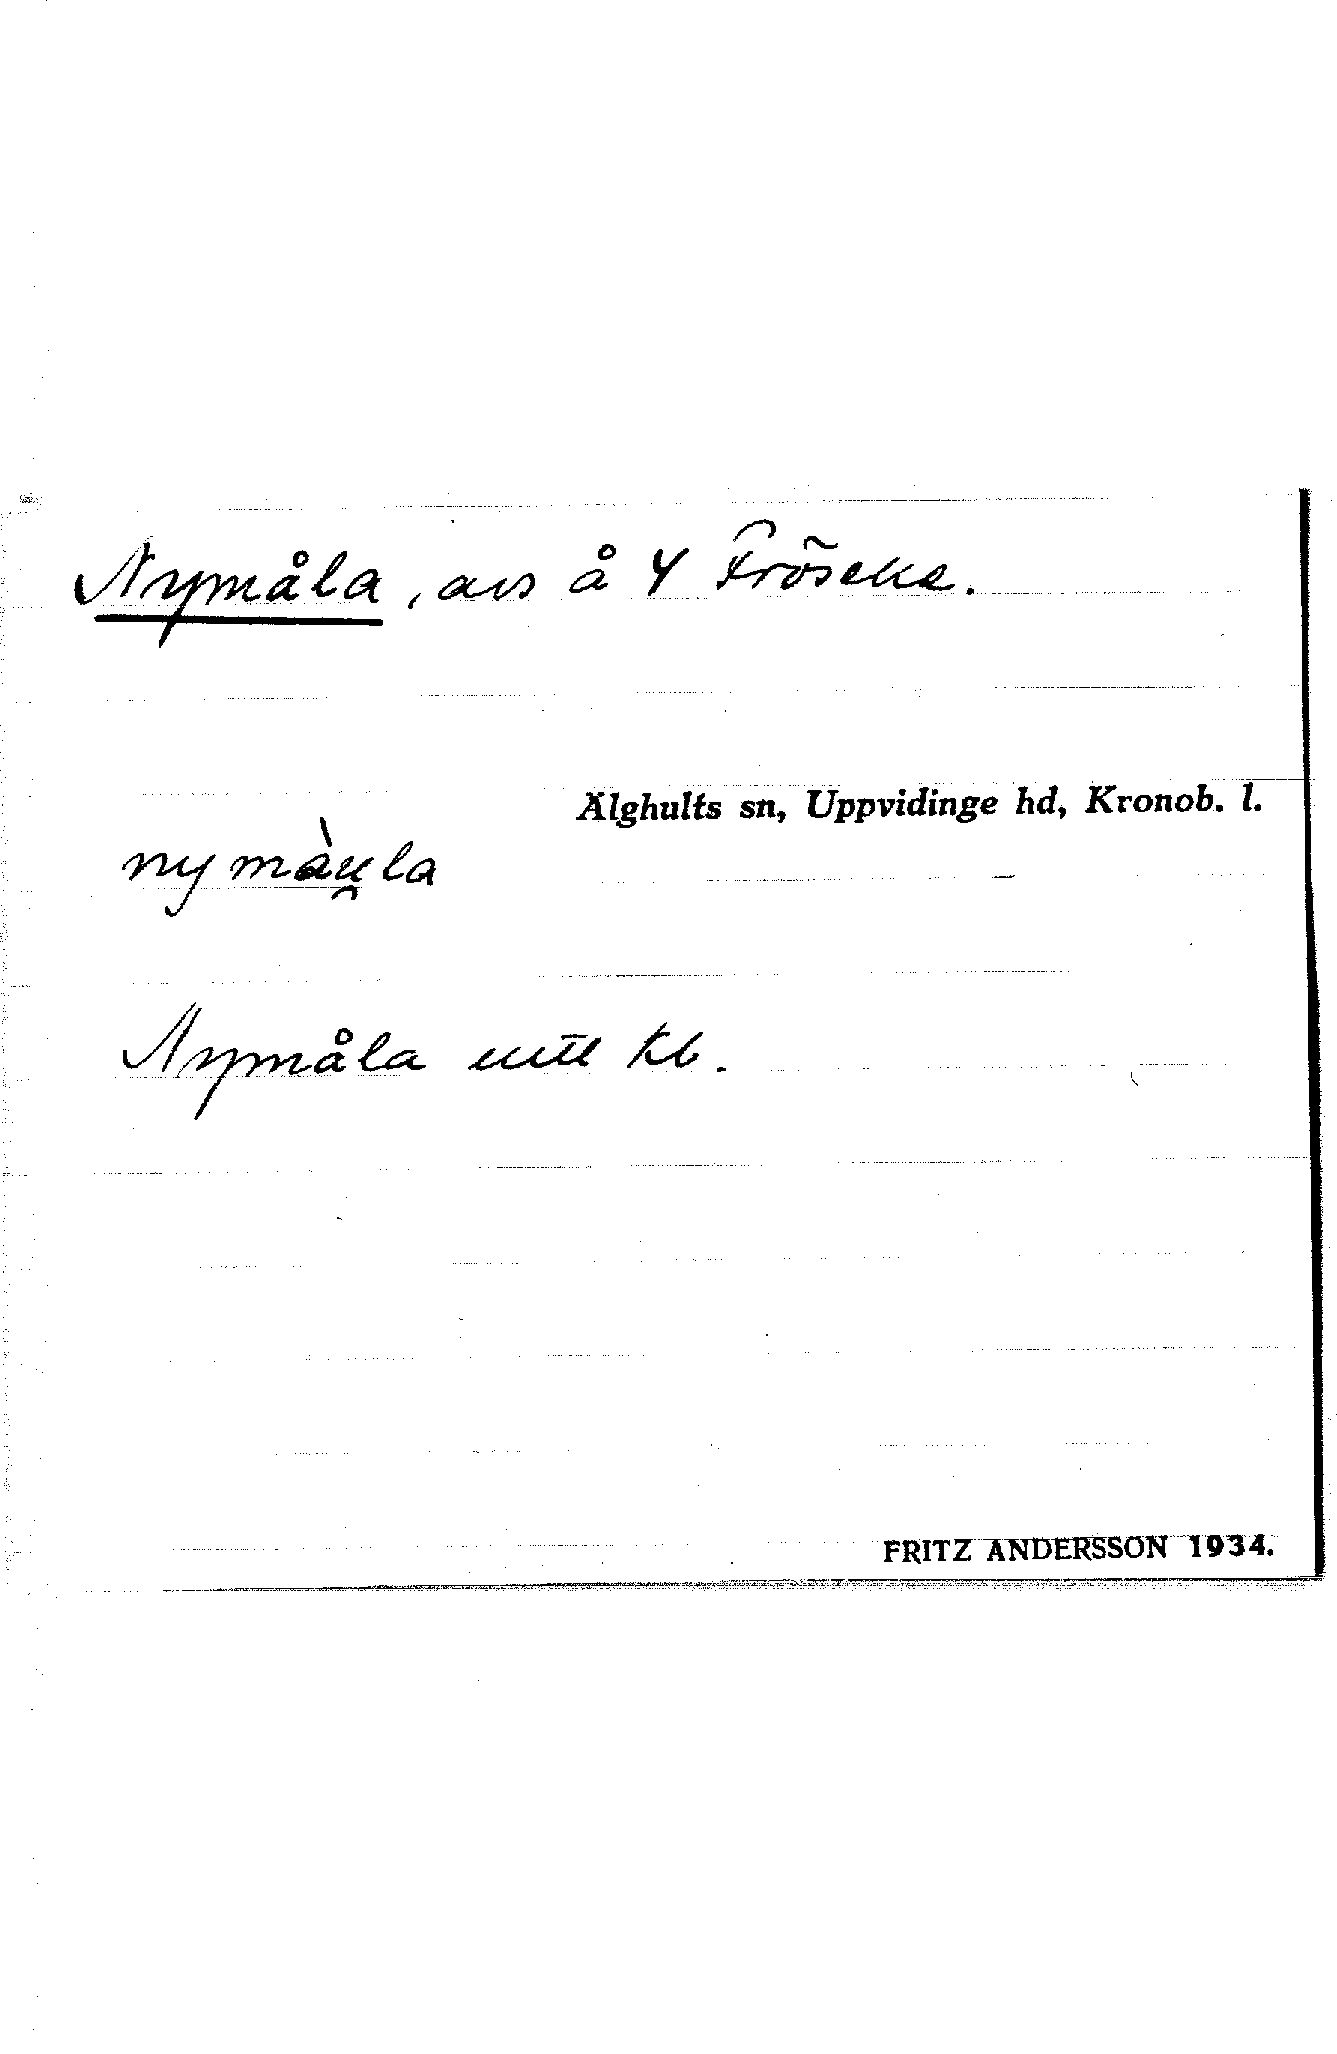 Nymåla, avs å 4 Fröseke.
Älghults sn, Uppvidinge hd, Kronob. l.
ny màu̯la
Nymåla utt kb.
FRITZ ANDERSSON 1934.